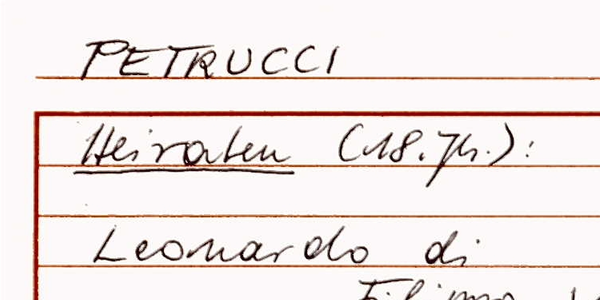 PETRUCCI
Heiraten (18. Jh.):
Leonardo di